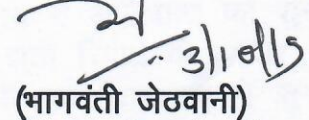 3/10/15
(भागवंती जेठवानी)